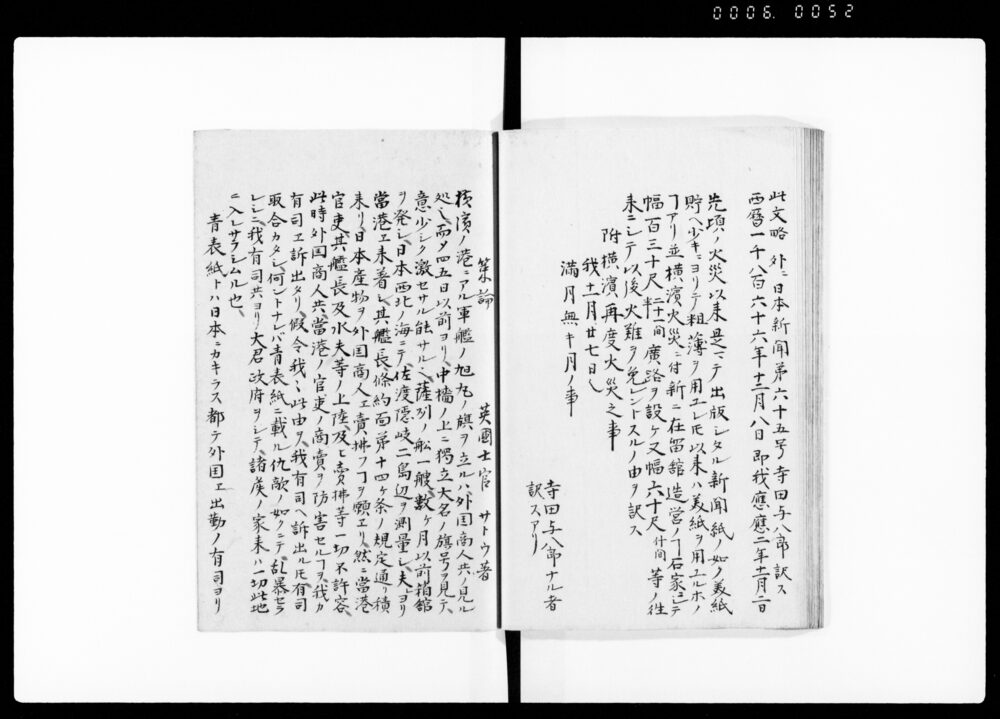 0006. 0052
此文略 外ニ日本新聞第六十五号寺田与八郎訳ス
西暦一千八百六十六年十二月八日即我慶應二年十一月二日
先頃ノ火災以来是マテ出版シタル新聞紙ノ如ノ美紙
貯ヘ少キニヨリテ粗薄ヲ用エレ𪜈以来ハ美紙ヲ用エルホノ
ヿアリ並横濱火災ニ付新ニ在留舘造営ノヿ石家ニシテ
幅百三十尺軒二十一間廣路ヲ設ケ又幅六十尺什間等ノ徃
来ニシテ以後火難ヲ免レントスルノ由ヲ訳ス
附横濱再度火災之事
我十一月廿七日ハ
満月無キ月ノ事
寺田与八郎ナル者
訳スアリ
策論
英國士官 サトウ著
横濱ノ港ニアル軍艦ノ旭丸ノ旗ヲ立ルハ外国商人共ノ見ル
処シ而メ四五日以前ヨリ中檣ノ上ニ獨立大名ノ旗号ヲ見テ
意少シク激セサル能サルシ薩列ノ舩一艘数ケ月以前箱舘
ヲ発シ日本西北ノ海ニテ佐渡隠岐二島辺ヲ測量シ夫ヨリ
當港エ来着シ其艦長條約面第十四ケ条ノ規定通リ積
来リ日本産物ヲ外国商人エ賣拂フヿヲ願エリ然ニ當港
官吏其艦長及水夫等ノ上陸及ヒ賣拂等一切不許容
此時外国商人共當港ノ官吏ノ商賣ヲ防害セルヿヲ我カ
有司エ訴出タリ假令我々此由ヲ我有司ヘ訴出ル𪜈有司
取合カタシ何ントナレバ青表紙ニ載ル仇敵ノ如クニテ乱暴セラ
レシニ我有司共ヨリ大君政府ヲシテ諸侯ノ家来ハ一切此地
ニ入レサラシムル也
青表紙トハ日本ニカキラス都テ外国エ出勤ノ有司ヨリ